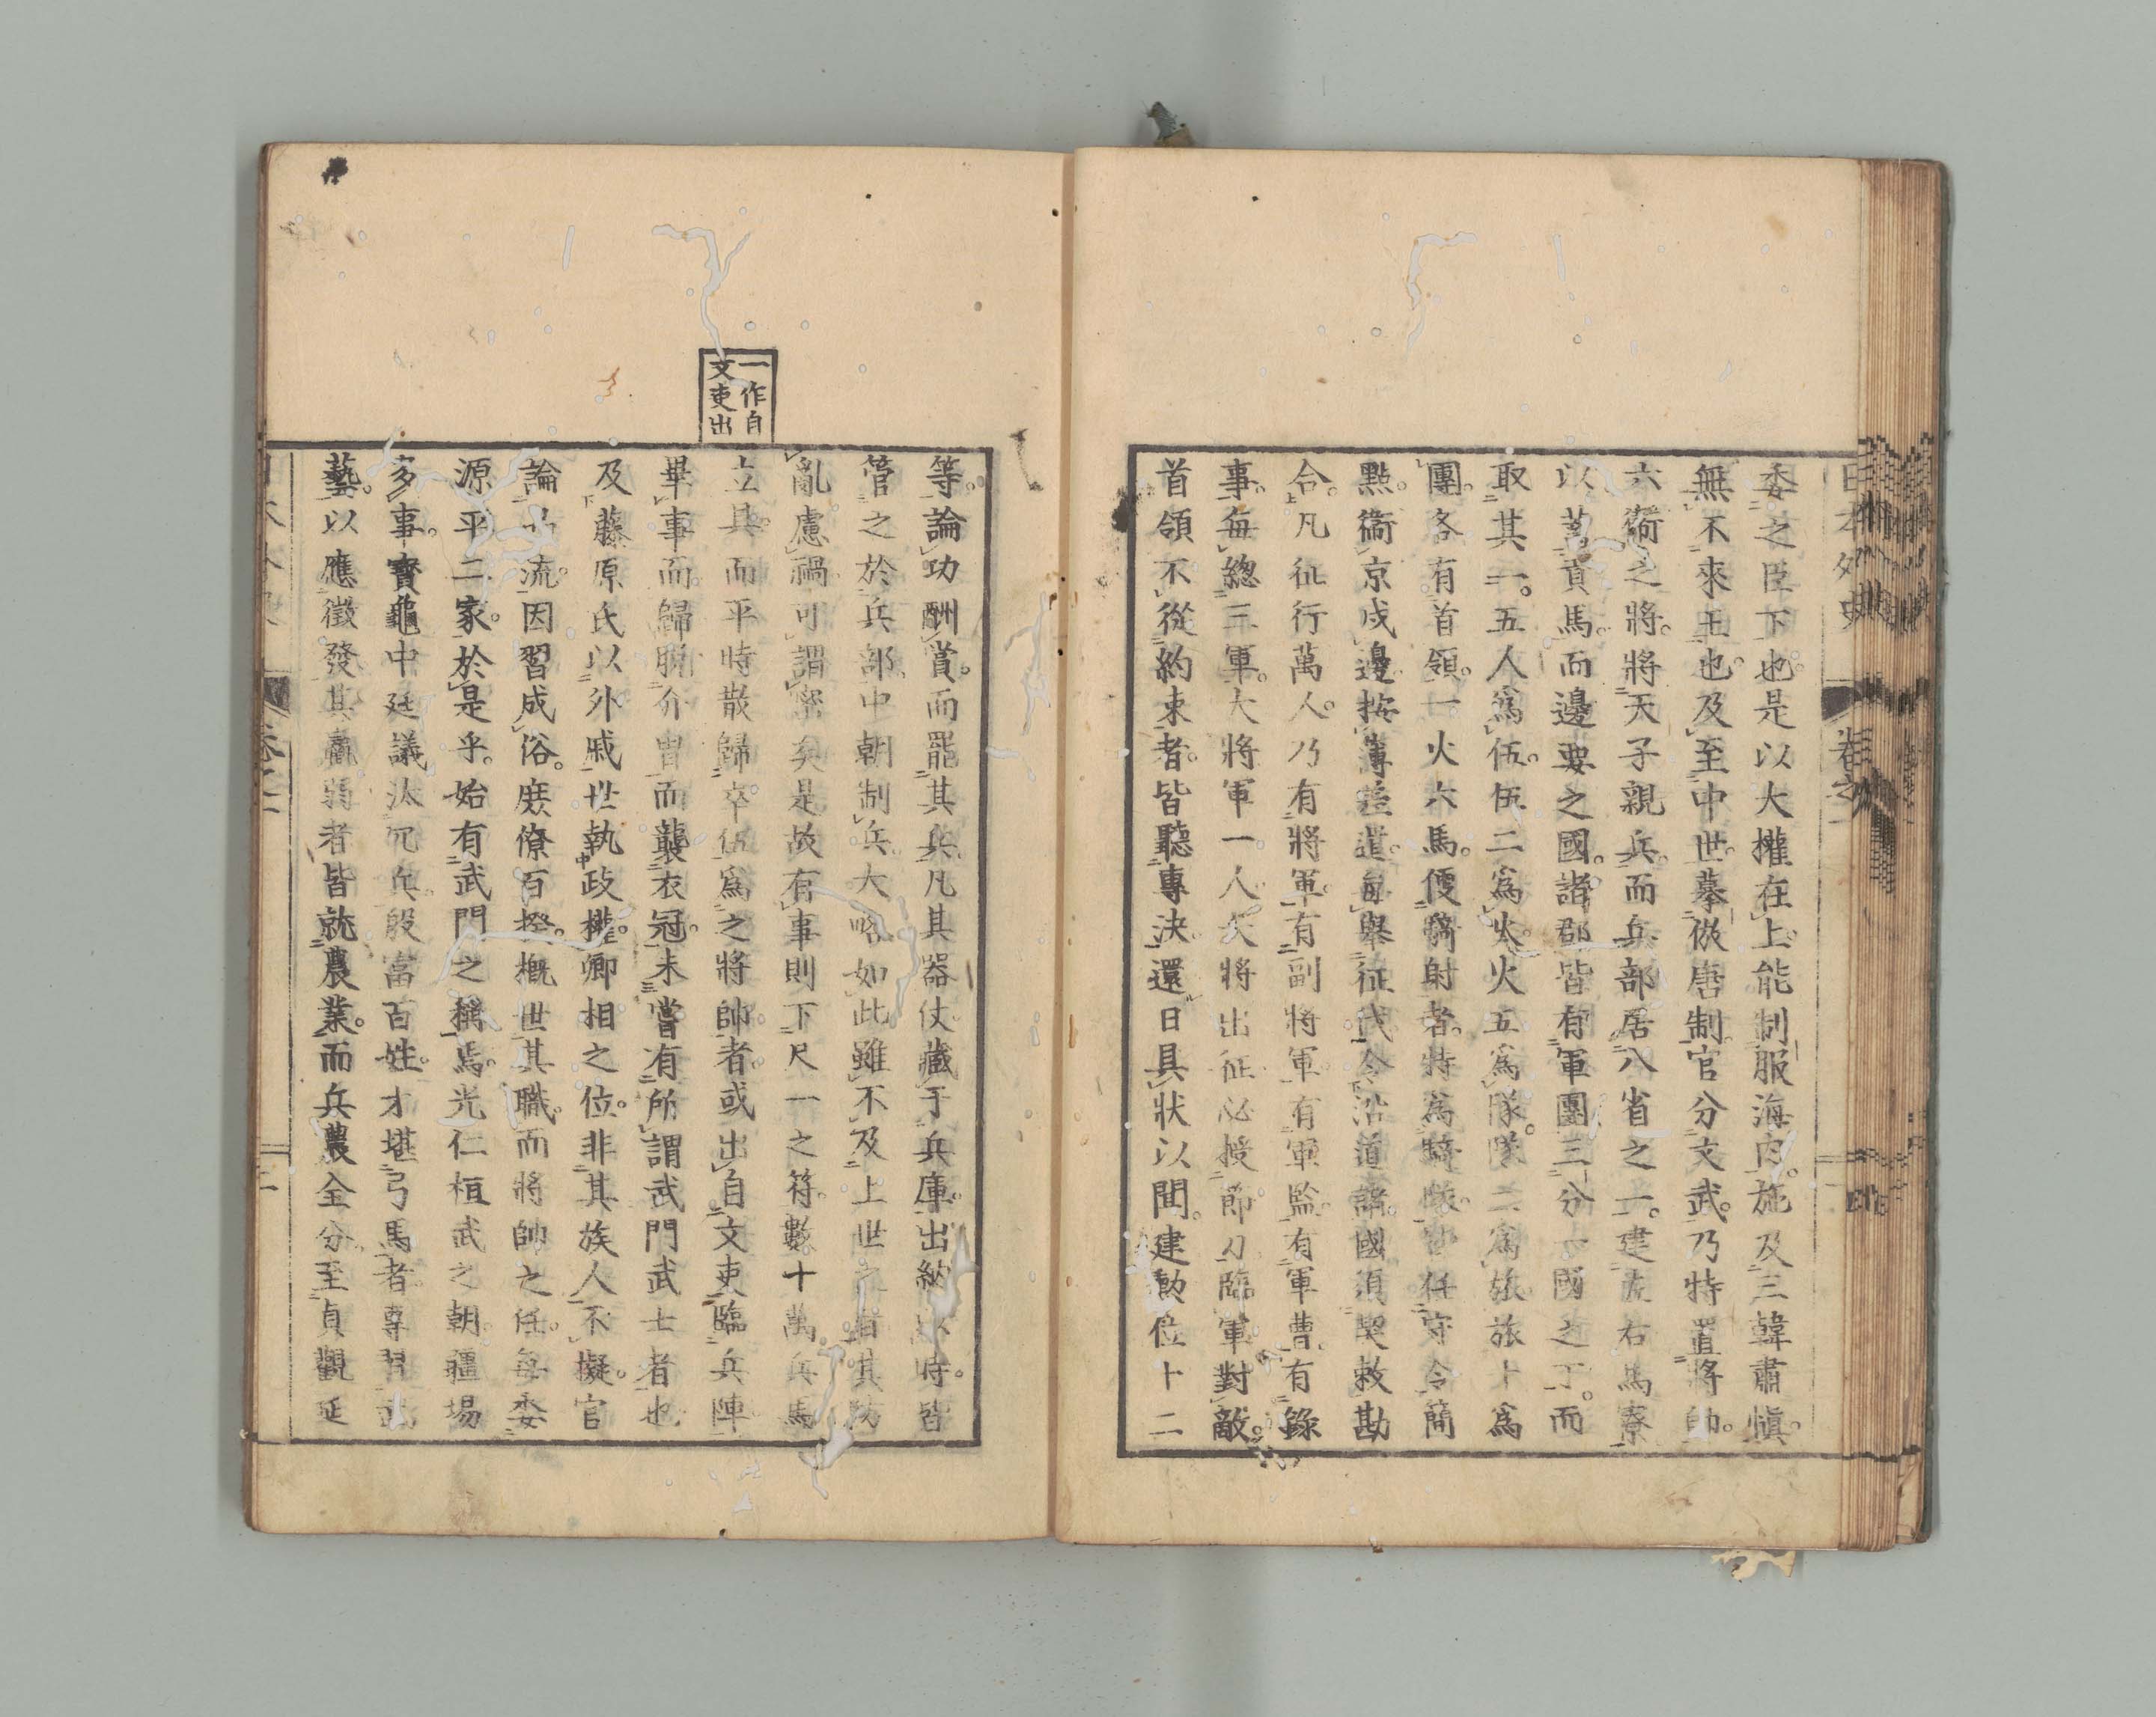 日本外史
卷之一
委之臣下也。是以大權在上。能制服海内。施及三韓肅愼。
無不來王也。及至中世。摹倣唐制。官分文武。乃特置將帥。
六衞之將。將天子親兵。而兵部居八省之一。建左右馬寮
以畜貢馬。而邊要之國。諸郡皆有軍團。三分一國之丁。而
取其一。五人爲伍。伍二爲火。火五爲隊。隊二爲旅。旅十爲
團。各有首領。一火六馬。便騎射者。特爲騎隊。皆任守令簡
點。衞京戍邊。按簿差遣。每擧征伐。令沿道諸國須契敕勘
合。凡征行萬人。乃有將軍。有副將軍。有軍監。有軍曹。有錄
事。每總三軍。大將軍一人。大將出征。必授節刀。臨軍對敵。
首領不從約束者。皆聽專決。還日具狀以聞。建勳位十二
等。論功酬賞。而罷其兵。凡其器仗。藏于兵庫。出納以時。皆
管之於兵部。中朝制兵。大略如此。雖不及上世之
其防
亂慮禍。可謂密矣。是故有事。則下尺一之符。數十萬兵馬
立具。而平時散歸卒伍。爲之將帥者。或出自文吏。臨兵陣
畢事而歸。脫介冑而襲衣冠。未嘗有所謂武門武士者也
及藤原氏以外戚世執政權。卿相之位。非其族人不擬。官
論
流。因習成俗。庶僚百揆。槪世其職。而將帥之任。每委
源平二家。於是乎。始有武門之稱焉。光仁桓武之朝。疆場
多事。寶龜中廷議汰冗兵。殷富百姓。才堪弓馬者。專習武
藝。以應徵發。其羸弱者。皆就農業。而兵農全分。至貞觀延
一作自
文吏出